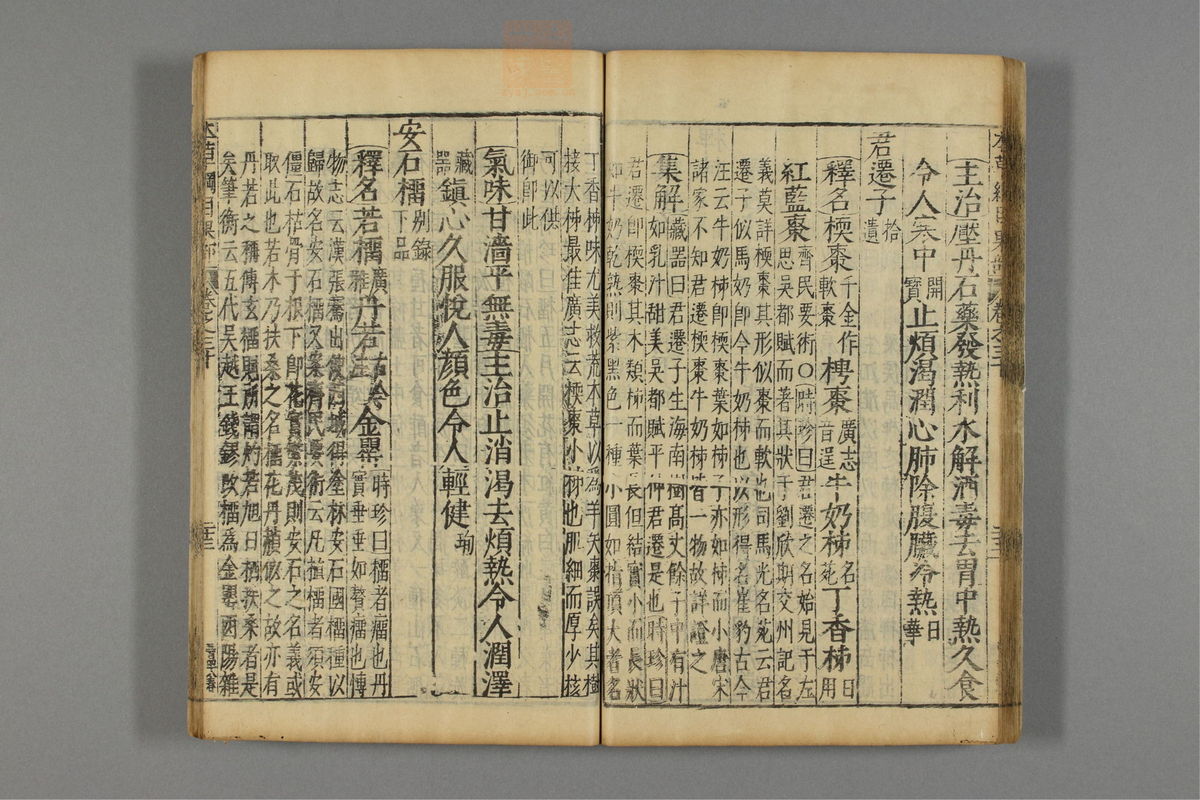 主治壓丹石藥發熱利水解酒毒去胃中熱久食
令人寒中開寶止煩渴潤心肺除腹臟冷熱日華
君遷子拾遺
釋名㮕棗千金作軟棗梬棗廣志音逞牛奶柹名苑丁香柹日用
紅藍棗齊民要術○時珍曰君遷之名始見于左
思吳都賦而著其狀于劉欣期交州記名
義莫詳㮕棗其形似棗而軟也司馬光名苑云君
遷子似馬奶即今牛奶柹也以形得名崔豹古今
注云牛奶柹即㮕棗葉如柹子亦如柹而小唐宋
諸家不知君遷㮕棗牛奶柹皆一物故詳證之
集解藏器曰君遷子生海南樹高丈餘子中有汁
如乳汁甜美吳都賦平仲君遷是也時珍曰
君遷即㮕棗其木類柹而葉長但結實小而長狀
如牛奶乾熟則紫黑色一種小圓如指頂大者名
丁香柹味尤美救荒本草以爲羊矢棗誤矣其樹
接大柹最佳廣志云㮕棗小柹也肌細而厚少核
可以供
御即此
氣味甘濇平無毒主治止消渴去煩熱令人潤澤
藏器鎮心久服悅人顔色令人輕健珣
安石榴別錄下品
釋名若榴廣雅丹若古今注金罌時珍曰榴者瘤也丹
實垂垂如贅瘤也博
物志云漢張騫出使西域得塗林安石國榴種以
歸故名安石榴又案齊民要術云凡植榴者須安
僵石枯骨于根下即花實繁茂則安石之名義或
取此也若木乃扶桑之名榴花丹頳似之故亦有
丹若之稱傅玄榴賦所謂灼若旭日栖扶桑者是
矣筆衡云五代吳越王錢鏐改榴爲金罌酉陽雜
本草綱目果部
卷之三十